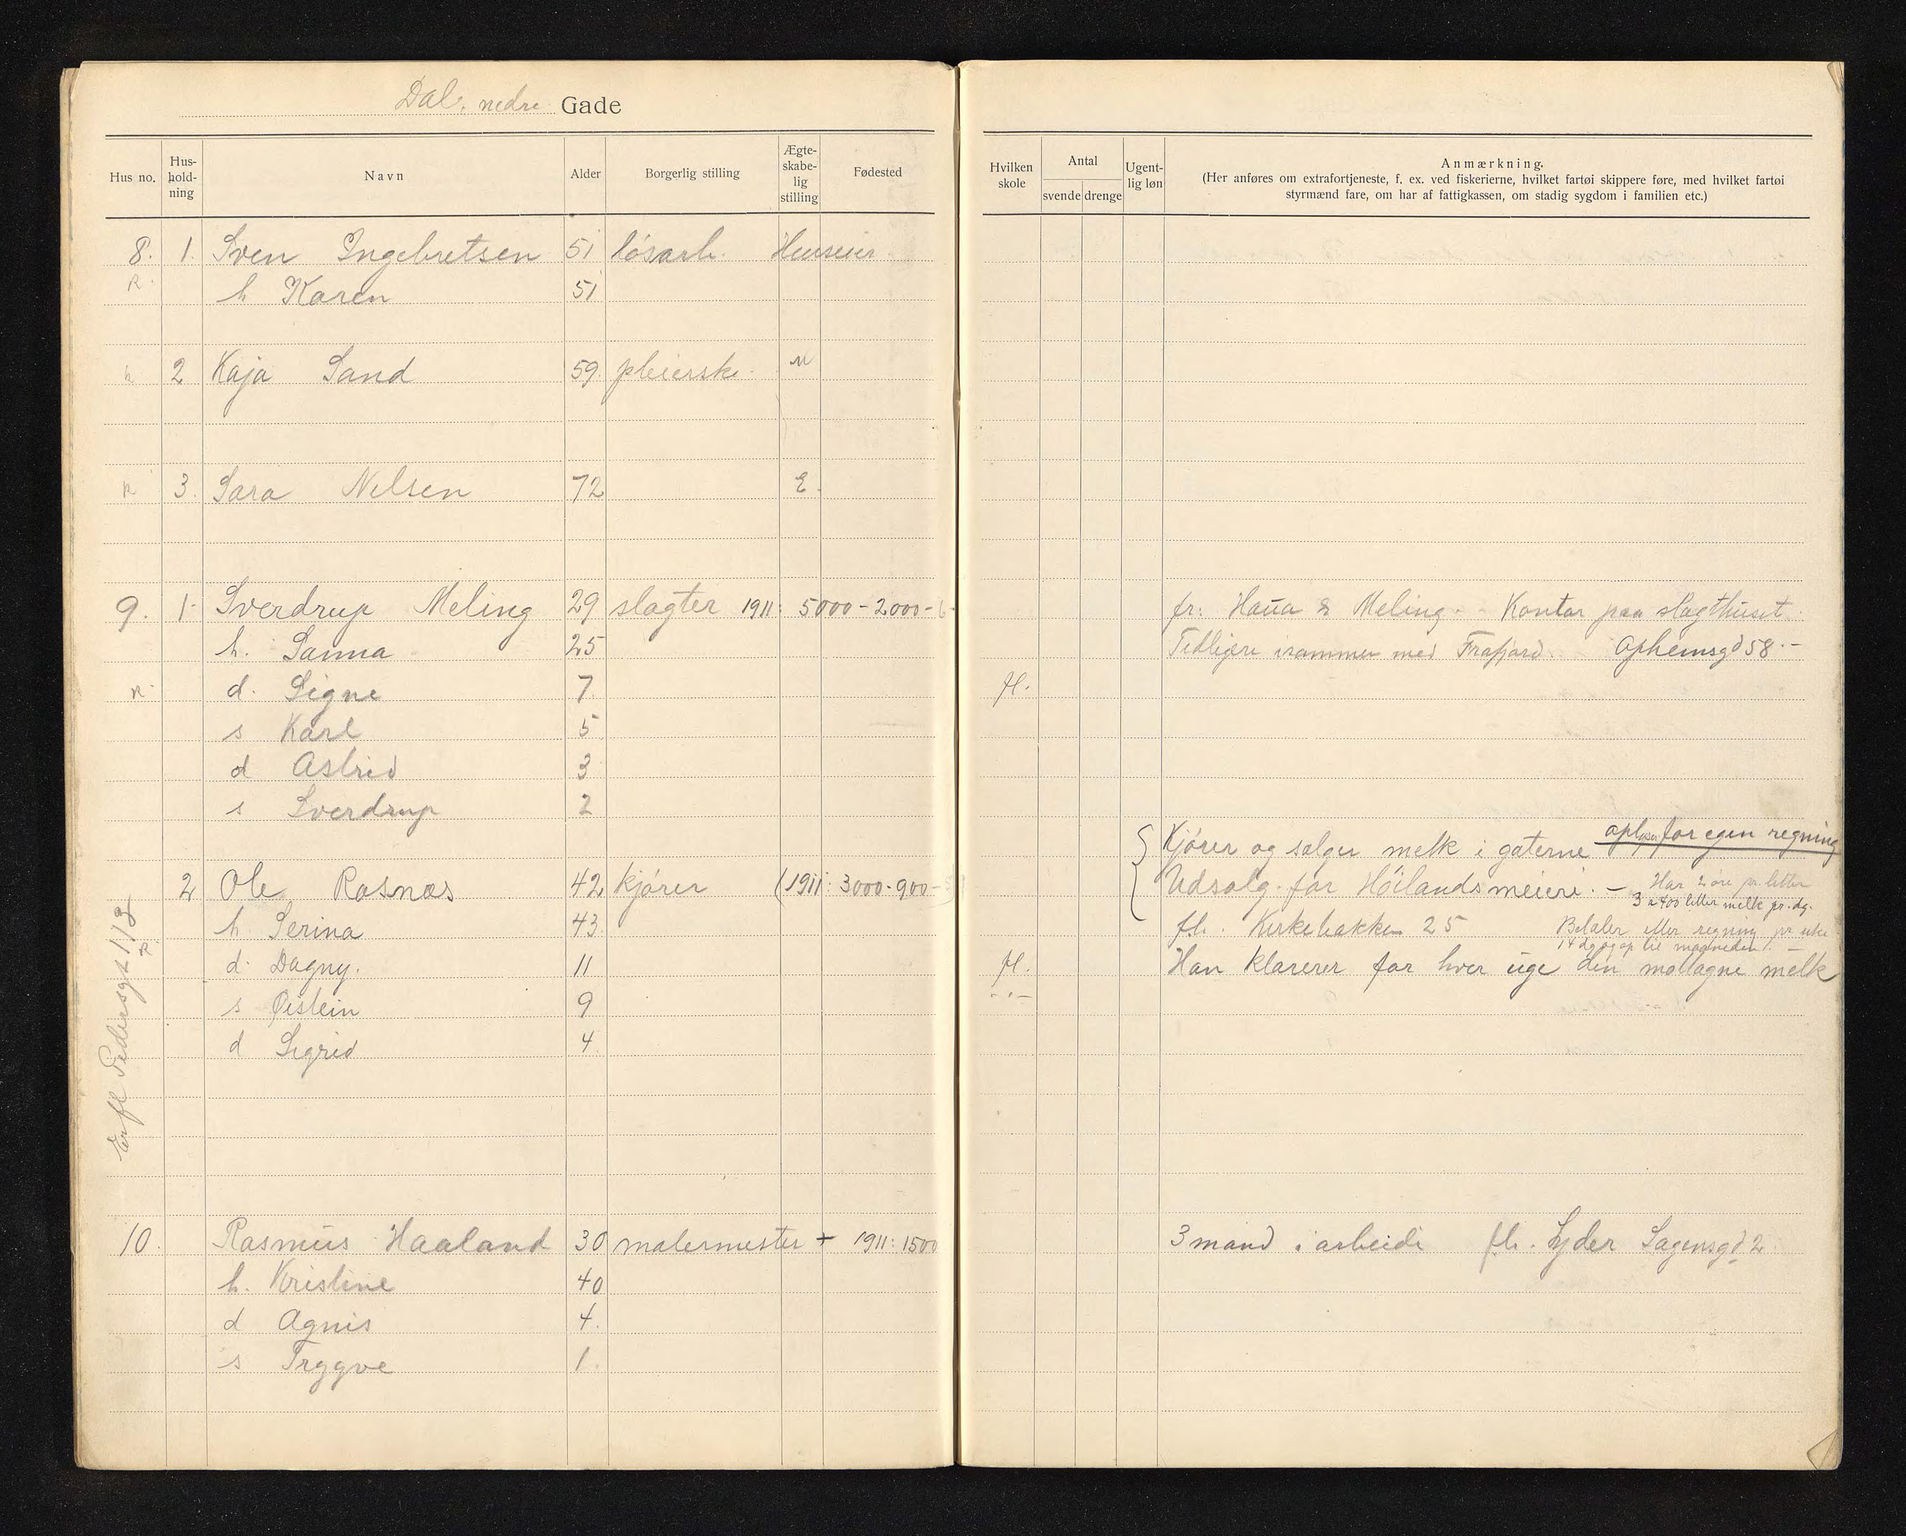 Dal. nedre Gade
Hus no. Hus-hold-ning Navn Alder Borgerlig stilling Ægte-skabe-lig stilling Fødested
8. 1. Sven Ingebretsen 51 løsarb. Huseier
R.
h Karen 51
2 Kaja Sand 59 pleierske
3. Sara Nelsen 72 E.
9. 1. Sverdrup Meling 29 slagter 1911: 5000-2000-
h. Sanna 25
d. Signe 7
s Karl 5
d Astrid 3
s Sverdrup 2
2 Ole Rosnæs 42 kjører (1911: 3000-900-
h Serina 43
d. Dagny. 11
s Øistein 9
d Sigrid 4
fl Pedersgt 113
10. Rasmus Haaland 30 malermester + 1911: 1500
h. Kristine 40
d Agnis 4.
s Tryggve 1.
Hvilken skole Antal svende drenge Ugent-lig løn Anmærkning.
(Her anføres om extrafortjeneste, f. ex. ved fiskerierne, hvilket fartøi skippere føre, med hvilket fartøi
styrmænd fare, om har af fattigkassen, om stadig sygdom i familien etc.)
fr: Haua & Meling. - Kontor paa slagthuset.
Tidligere sammen med Frafjord. Ophemsgd 58.-
H.
for egen regning
Kjører og selger melk i gaterne
Udsalg for Höilandsmeieri. - Har 2 øre pr. litter
3 a 400 litter melk pr. dg.
fl. Kirkebakken 25 Betaler efter regning pr uke
14 dg og op til magneden). -
H. Han klarerer for hver uge den motagne melk
- " -
3 mand i arbeide fl. Lyder Sagensgd 2.